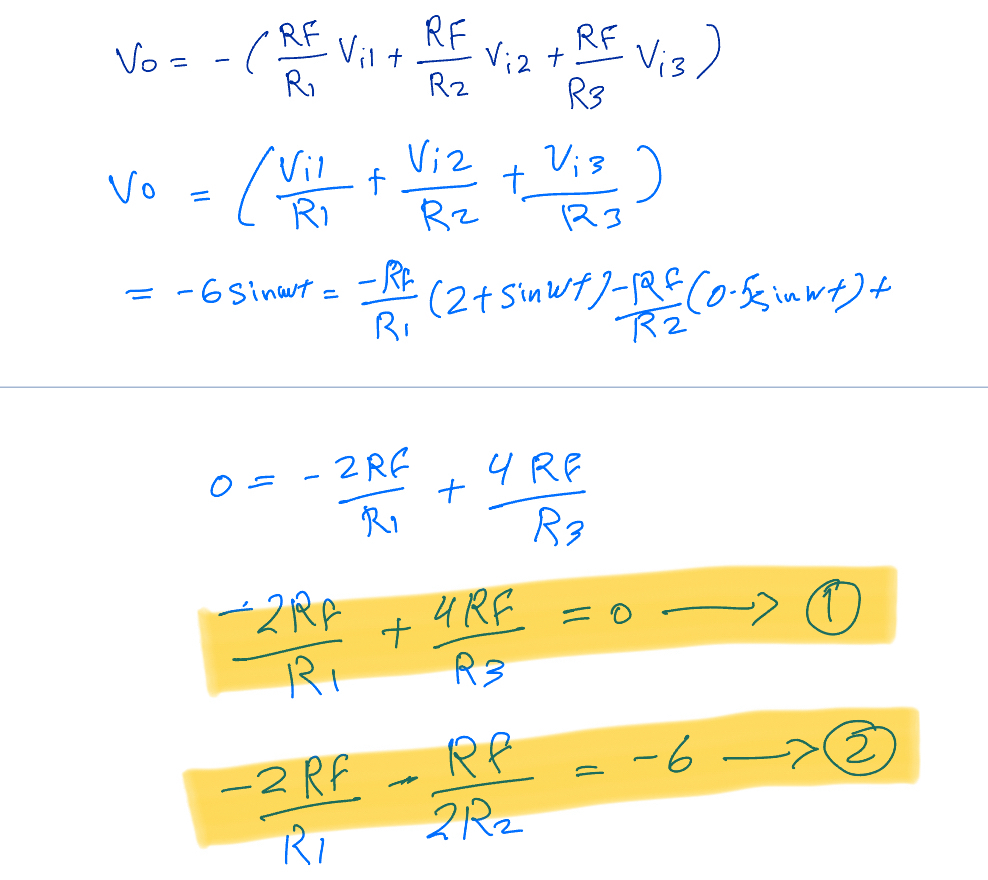 Vo = - ( RF/R1 Vi1 + RF/R2 Vi2 + RF/R3 Vi3 )
Vo = ( Vi1/R1 + Vi2/R2 + Vi3/R3 )
= -6 sinwt = -RF/R1 (2+sinwt) - RF/R2 (0.5sinwt) +
0 = - 2RF/R1 + 4RF/R3
-2RF/R1 + 4RF/R3 = 0 → ①
-2RF/R1 - RF/2R2 = -6 → ②